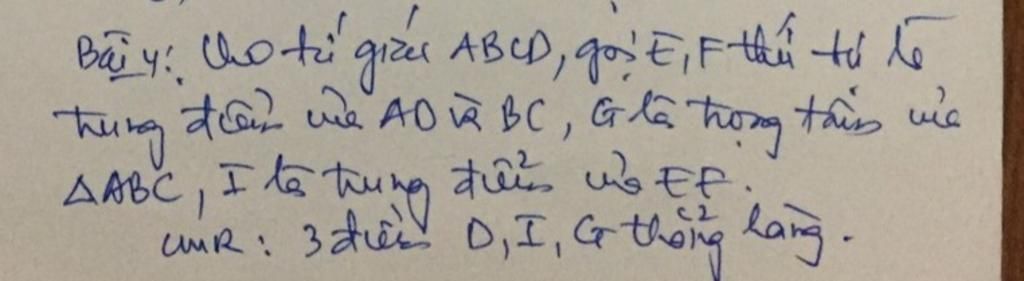 Bài 4: Cho tứ giác ABCD, gọi E, F thứ tự là
trung điểm của AD và BC, G là trọng tâm của
△ABC, I là trung điểm của EF.
CMR: 3 điểm D, I, G thẳng hàng.